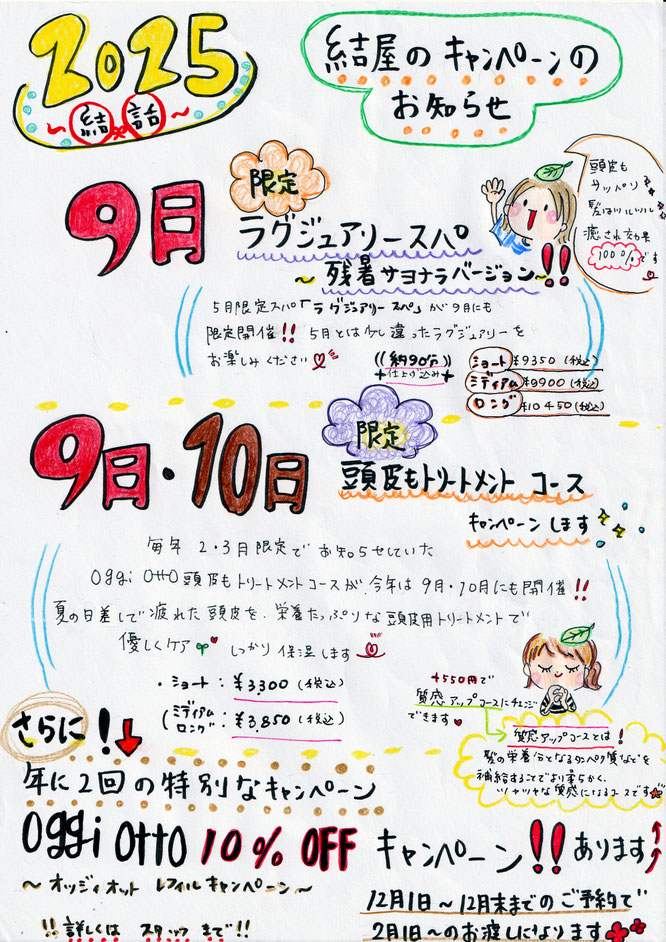 2025
～結話～
結屋のキャンペーンの
お知らせ
9月
限定
ラグジュアリースパ
～残暑サヨナラバージョン～!!
頭皮も
サッパリ
髪はツルツル
癒され効果
100%です
5月限定スパ「ラグジュアリースパ」が9月にも
限定開催!! 5月とは少し違ったラグジュアリーを
お楽しみください
((約90分))
+仕上げ込み+
ショート ¥9350(税込)
ミディアム ¥9900(税込)
ロング ¥10450(税込)
9月・10月
限定
頭皮もトリートメントコース
キャンペーンします
毎年 2・3月限定でお知らせしていた
Oggi Otto頭皮もトリートメントコースが、今年は9月・10月にも開催!!
夏の日差しで疲れた頭皮を、栄養たっぷりな頭皮用トリートメントで
優しくケア しっかり保湿します
・ショート:¥3300(税込)
(ミディアム
ロング:¥3,850(税込)
+550円で
質感アップコースにチェンジ
できます
質感アップコースとは!
髪の栄養分となるタンパク質などを
補給することでより柔らかく、
ツヤツヤな質感になるコースです
さらに!
年に2回の特別なキャンペーン
Oggi Otto 10% OFF キャンペーン!! あります
～オッジィオット レフィルキャンペーン～
12月1日～12月末までのご予約で
2月1日～のお渡しになります
!!詳しくは スタッフまで!!